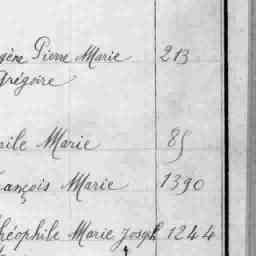 gène Pierre Marie 213
Grégoire
rile Marie 85
rançois Marie 1390
héophile Marie Joseph 1244